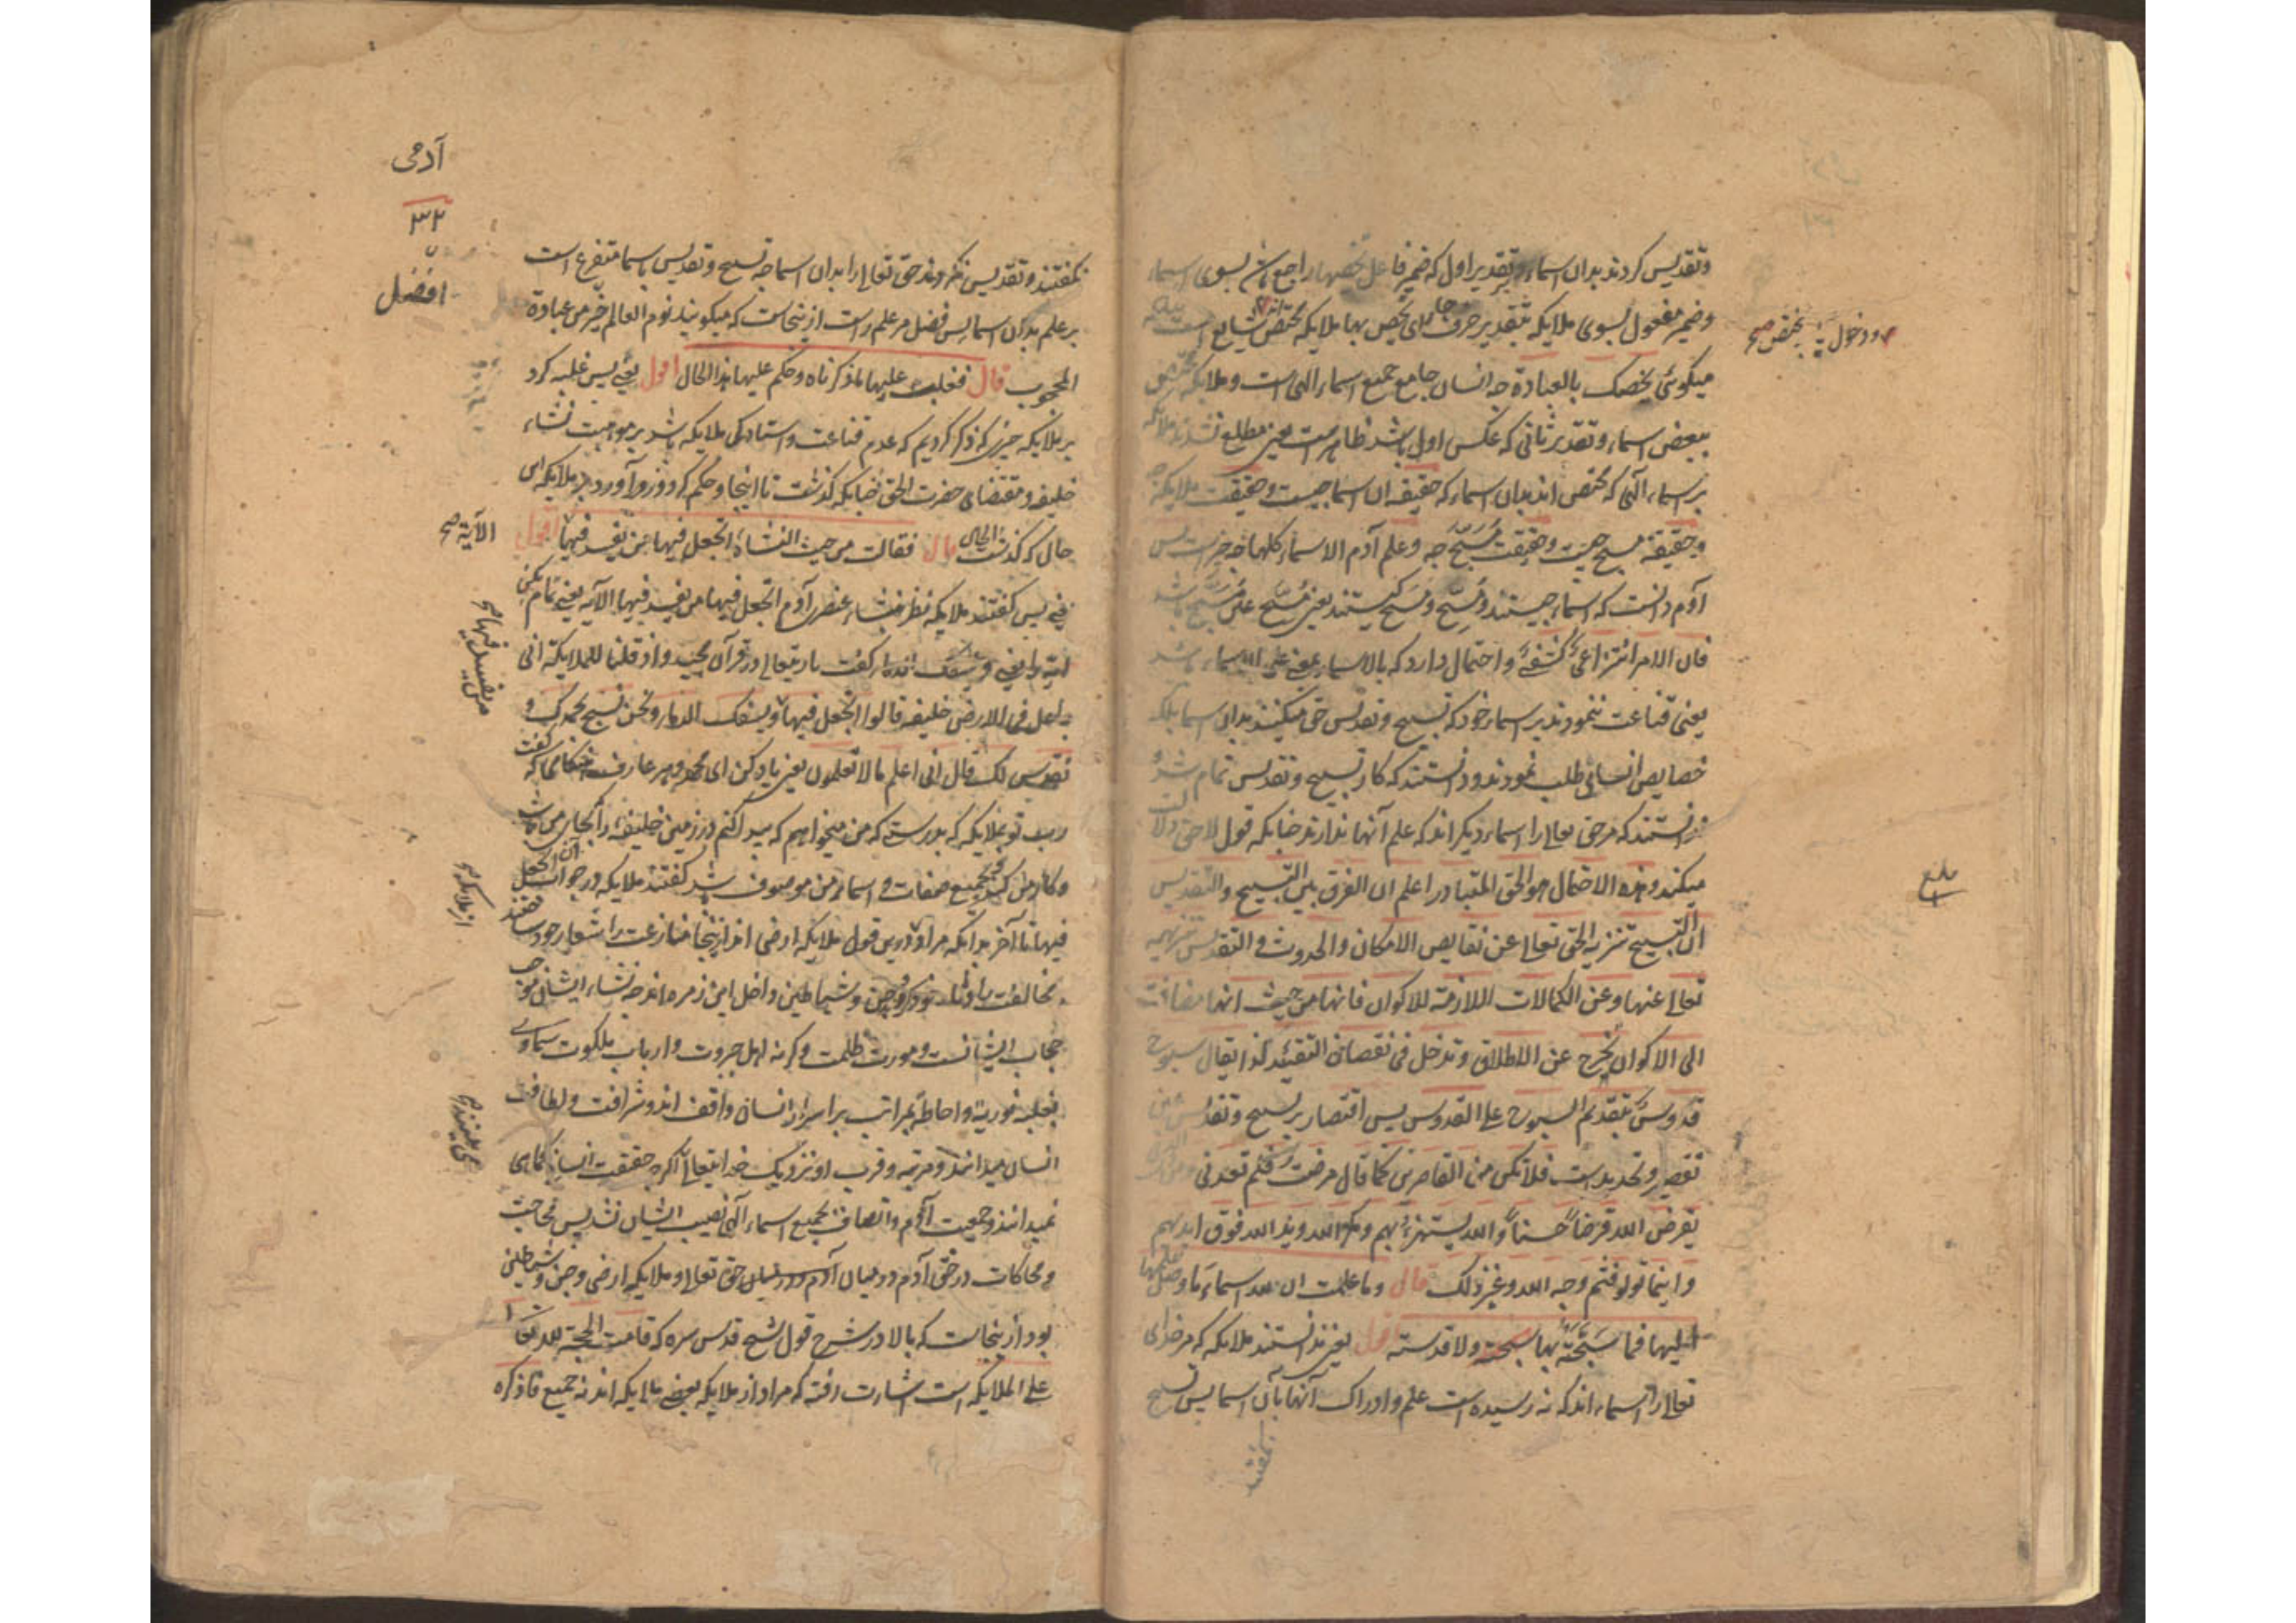 وتقدیس کردند بدان اسماء وبتقدیر اول که ضمیر فاعل تخصها راجع باشد بسوی اسماء
وضمیر مفعول بسوی ملایکه بتقدیر حرف جار ای یخص بها ملایکه مختص شایع است
و دخول یختص صح
میکوئی نخصک بالعبادة چه انسان جامع جمیع اسماء الهی است و ملایکه مختص
ببعض اسماء وتقدیر ثانی که عکس اول باشد ظاهرست یعنی مطلع نشدند ملایکه
بر اسماء الهی که مختص اند بدان اسماء که حقیقه ان اسما چیست وحقیقت ملایکه چه
وحقیقة مسبح چیست وحقیقت مسبح چه وعلم آدم الاسماء کلها چه چیزست پس
آدم دانست که اسماء چیستند ومسبح ومسبح کیستند یعنی مسبح علی مسبح باشد
فان الامر انتزاعی کشفی و احتمال دارد که بالاسماء بمعنی علی الاسماء باشد
یعنی قناعت ننمودند بر اسماء خود که تسبیح وتقدیس حق میکنند بدان اسما بلکه
خصایص انسانی طلب نمودند ودانستند که کار تسبیح وتقدیس تمام شد و
ندانستند که مر حق تعالی را اسماء دیکر اند که علم آنها ندارند چنانکه قول لاحق دلالت
میکند وهذه الاحتمال هو الحق المتبادر اعلم ان الفرق بین التسبیح والتقدیس
ان التسبیح تنزیه الحق تعالی عن نقایص الامکان والحدوث و التقدیس تنزیهه
تعالی عنها وعن الکمالات اللازمة للاکوان فانها من حیث انها مضافة
الی الاکوان تخرج عن الاطلاق وتدخل فی نقصان التقیید کذا یقال سبوح
قدوس بتقدیم السبوح علی القدوس پس اقتصار بر تسبیح وتقدیس عین
تقصیر وتحدید ست فلا تکن من القاصرین کما قال مرضت فلم تعدنی
یقرض الله قرضا حسنا والله یستهزئ بهم ومکر الله وید الله فوق ایدیهم
واینما تولوا فثم وجه الله وغیر ذلک قال وما علمت ان لله اسماء ما وصل علمها
الیها فما سبحته بها ولا قدسته اقول یعنی ندانستند ملایکه که مر خدای
تعالی را اسماء اند که نه رسیده است علم و ادراک آنها بآن اسما پس تسبیح
نکفتند
آدمی
۳۲
افضل
نکفتند وتقدیس نکردند حق تعالی را بدان اسما چه تسبیح وتقدیس باسما متفرع است
بر علم بدان اسما پس فضل مر علم راست ازینجاست که میکویند نوم العالم خیر من عبادة
المحجوب قال فغلب علیها ما ذکرناه وحکم علیها هذا الحال اقول یعنی پس غلبه کرد
بر ملایکه چیزی که ذکر کردیم که عدم قناعت و استادکی ملایکه باشد بر موجب نشاء
خلیفه ومقتضای حضرت الحق چنانکه کذشت تا اینجا وحکم کرد وزور آورد بر ملایکه این
حال که کذشت قال فقالت من حیث النشاة اتجعل فیها من یفسد فیها اقول
الآیة صح
یعنی پس کفتند ملایکه نظر بنشاء عنصری آدم اتجعل فیها من یفسد فیها الآیه یعنی تمام بکن
من یفسد فیها صح
آیة را یعنی ویسفک الدماء کفت باریتعالی در قرآن مجید واذ قلنا للملایکة انی
جاعل فی الارض خلیفه قالوا اتجعل فیها ویسفک الدماء ونحن نسبح بحمدک و
نقدس لک قال انی اعلم ما لا تعلمون یعنی یاد کن ای محمد وهر عارف هنکامی که کفت
رب تو بملایکه که بدرستی که من میخواهم که پیدا کنم در زمین خلیفه را بجای من باشد
وکار من کند بجمیع صفات و اسماء من موصوف باشد کفتند ملایکه در جواب اتجعل
از ملایکه صح
فیها تا آخر بدانکه مراد درین قول ملایکه ارضی اند ازینجا منازعت را شعار خود ساختند
مخالفت وجن وشیاطین داخل این زمره اند چه نشاء ایشان موجب
حجاب ایشانست ومورث ظلمت وکرنه اهل جبروت وارباب ملکوت سماوی
بغلبه نوریة و احاطه بمراتب بر اسرار انسان واقف اند وشرافت ولطافت
انسان میدانند ومرتبه وقرب او نزدیک خدایتعالی اکرچه حقیقت انسانی کماهی
نمیدانند وجمعیت آدم واتصاف بجمیع اسماء الهی نصیب ایشان نشد پس مباحثه
ومحاکات در حق آدم ودر میان حق تعالی و ملایکه ارضی وجن وشیاطین
بود ازینجاست که بالا در شرح قول شیخ قدس سره که قامت الحجة لله تعالی
علی الملایکه است اشارت رفته که مراد از ملایکه بعض ملایکه اند نه جمیع فاذکره